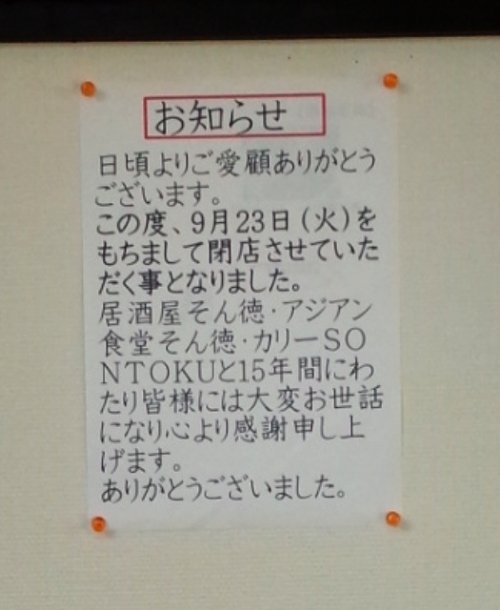 お知らせ
日頃よりご愛顧ありがとう
ございます。
この度、9月23日(火)を
もちまして閉店させていた
だく事となりました。
居酒屋そん徳・アジアン
食堂そん徳・カリーSO
NTOKUと15年間にわ
たり皆様には大変お世話
になり心より感謝申し上
げます。
ありがとうございました。